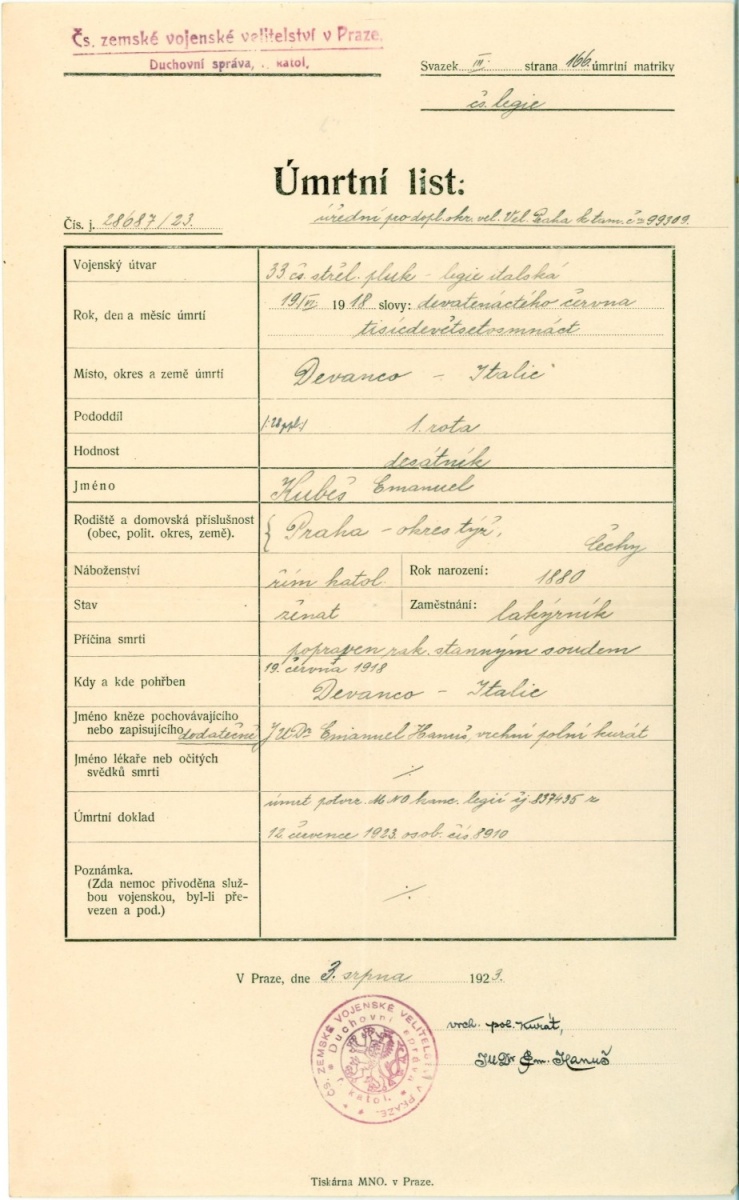 Čs. zemské vojenské velitelství v Praze.
Duchovní správa, ř. katol.
Svazek III. strana 166. úmrtní matriky
čs. legie
Úmrtní list:
Čís. j. 28687/23.
úřední pro dopl. okr. vel. Vel. Praha k tam. č= 99309.
Vojenský útvar
33 čs. střel. pluk – legie italská
Rok, den a měsíc úmrtí
19/VI. 1918 slovy: devatenáctého června
tisícdevětsetosmnáct
Místo, okres a země úmrtí
Devanco – Italie
Pododdíl
/:28 ppl:/ 1. rota
Hodnost
desátník
Jméno
Kubeš Emanuel
Rodiště a domovská příslušnost
(obec, polit. okres, země).
{ Praha – okres týž,
Čechy
Náboženství
řím katol.
Rok narození:
1880
Stav
ženat
Zaměstnání:
lakýrník
Příčina smrti
popraven rak. stanným soudem
Kdy a kde pohřben
19. června 1918
Devanco – Italie
Jméno kněze pochovávajícího
nebo zapisujícího dodatečně
JUDr Emanuel Hanuš, vrchní polní kurát
Jméno lékaře neb očitých
svědků smrti
./.
Úmrtní doklad
úmrt potvrz. MNO kanc. legií čj 837435 z
12. července 1923. osob. čís. 8910
Poznámka.
(Zda nemoc přivoděna služ-
bou vojenskou, byl-li pře-
vezen a pod.)
./.
V Praze, dne 3. srpna 1923.
ČS. ZEMSKÉ VOJENSKÉ VELITELSTVÍ V PRAZE.
Duchovní správa
ř. katol.
vrch. pol. kurát,
JUDr Em. Hanuš
Tiskárna MNO. v Praze.